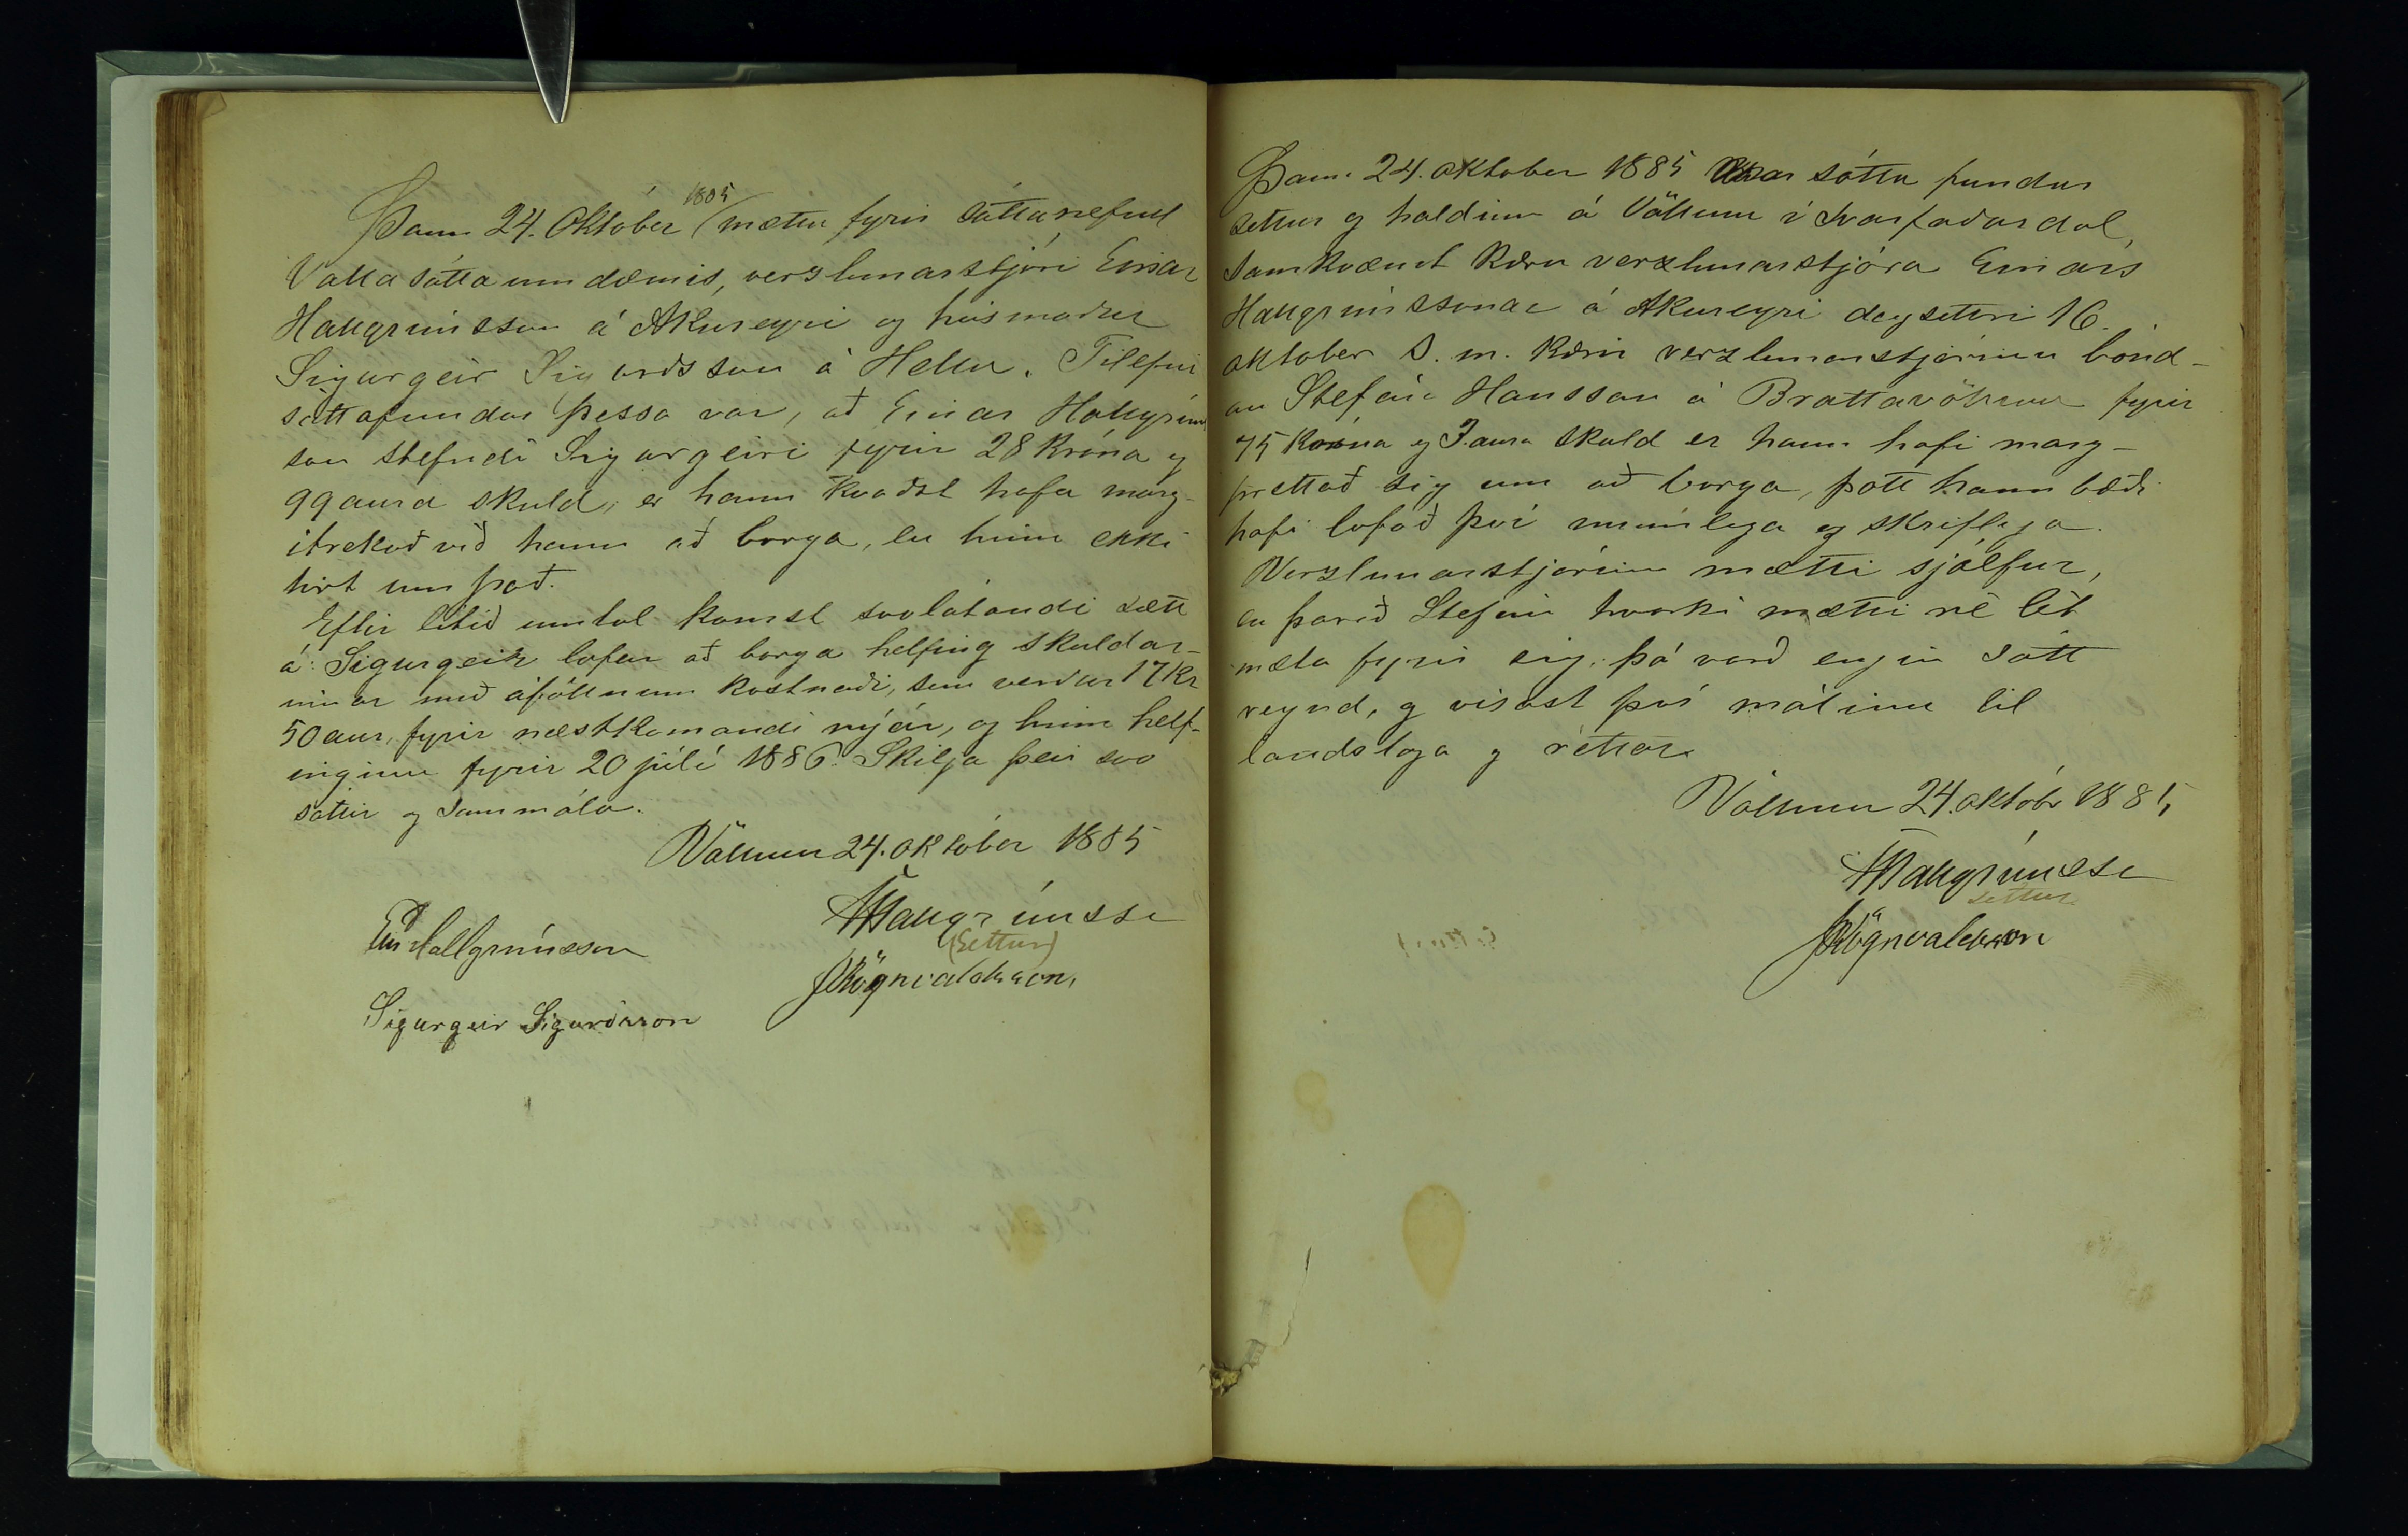 Þann 24. Október 1885 mættu fyrir sáttanefnd
Valla sáttaumdæmis, verzlunarstjóri Einar
Hallgrímsson á Akureyri og húsmaður
Sigurgeir Sigurðsson á Hellu. Tilefni
sáttafundar þessa var, að Einar Hallgríms
son stefndi Sigurgeiri fyrir 28 króna og
99 aura skuld, er hann kvaðst hafa marg-
ítrekað við hann að borga, en hinn ekki
hirt um það.
Eftir lítið umtal komst svolátandi sætt
á: Sigurgeir lofar að borga helfing skuldar-
innar með áföllnum kostnaði, sem verður 17 kr
50 aur, fyrir næstkomandi nýár, og hinn helf-
inginn fyrir 20 júlí 1886. Skilja þeir svo
sáttir og sammála.
Völlum 24. október 1885
THallgrímsson
(Settur)
Ein Hallgrímsson
JRögnvaldsson,
Sigurgeir Sigurðsson
Þann 24. oktober 1885 var sátta fundur
settur og haldinn á Völlum í Svarfaðardal,
samkvæmt kæru verzlunarstjóra Einars
Hallgrímssonar á Akureyri dagsettri 16.
oktober s. m. kærir verzlunarstjórinn bónd-
an Stefán Hansson á Brattavöllum fyrir
75 króna og 3 aura skuld er hann hafi marg-
prettað sig um að borga, þótt hann bæði
hafi lofað því munnlega og skriflega.
Verzlunarstjórinn mætti sjálfur,
en þarið Stefán hvorki mætti né lét
mæta fyrir sig, þá varð engin sátt
reynd, og vísast því málinu til
landslaga og réttar.
Völlum 24. októbr 1885
THallgrímsson
settur
JRögnvaldsson